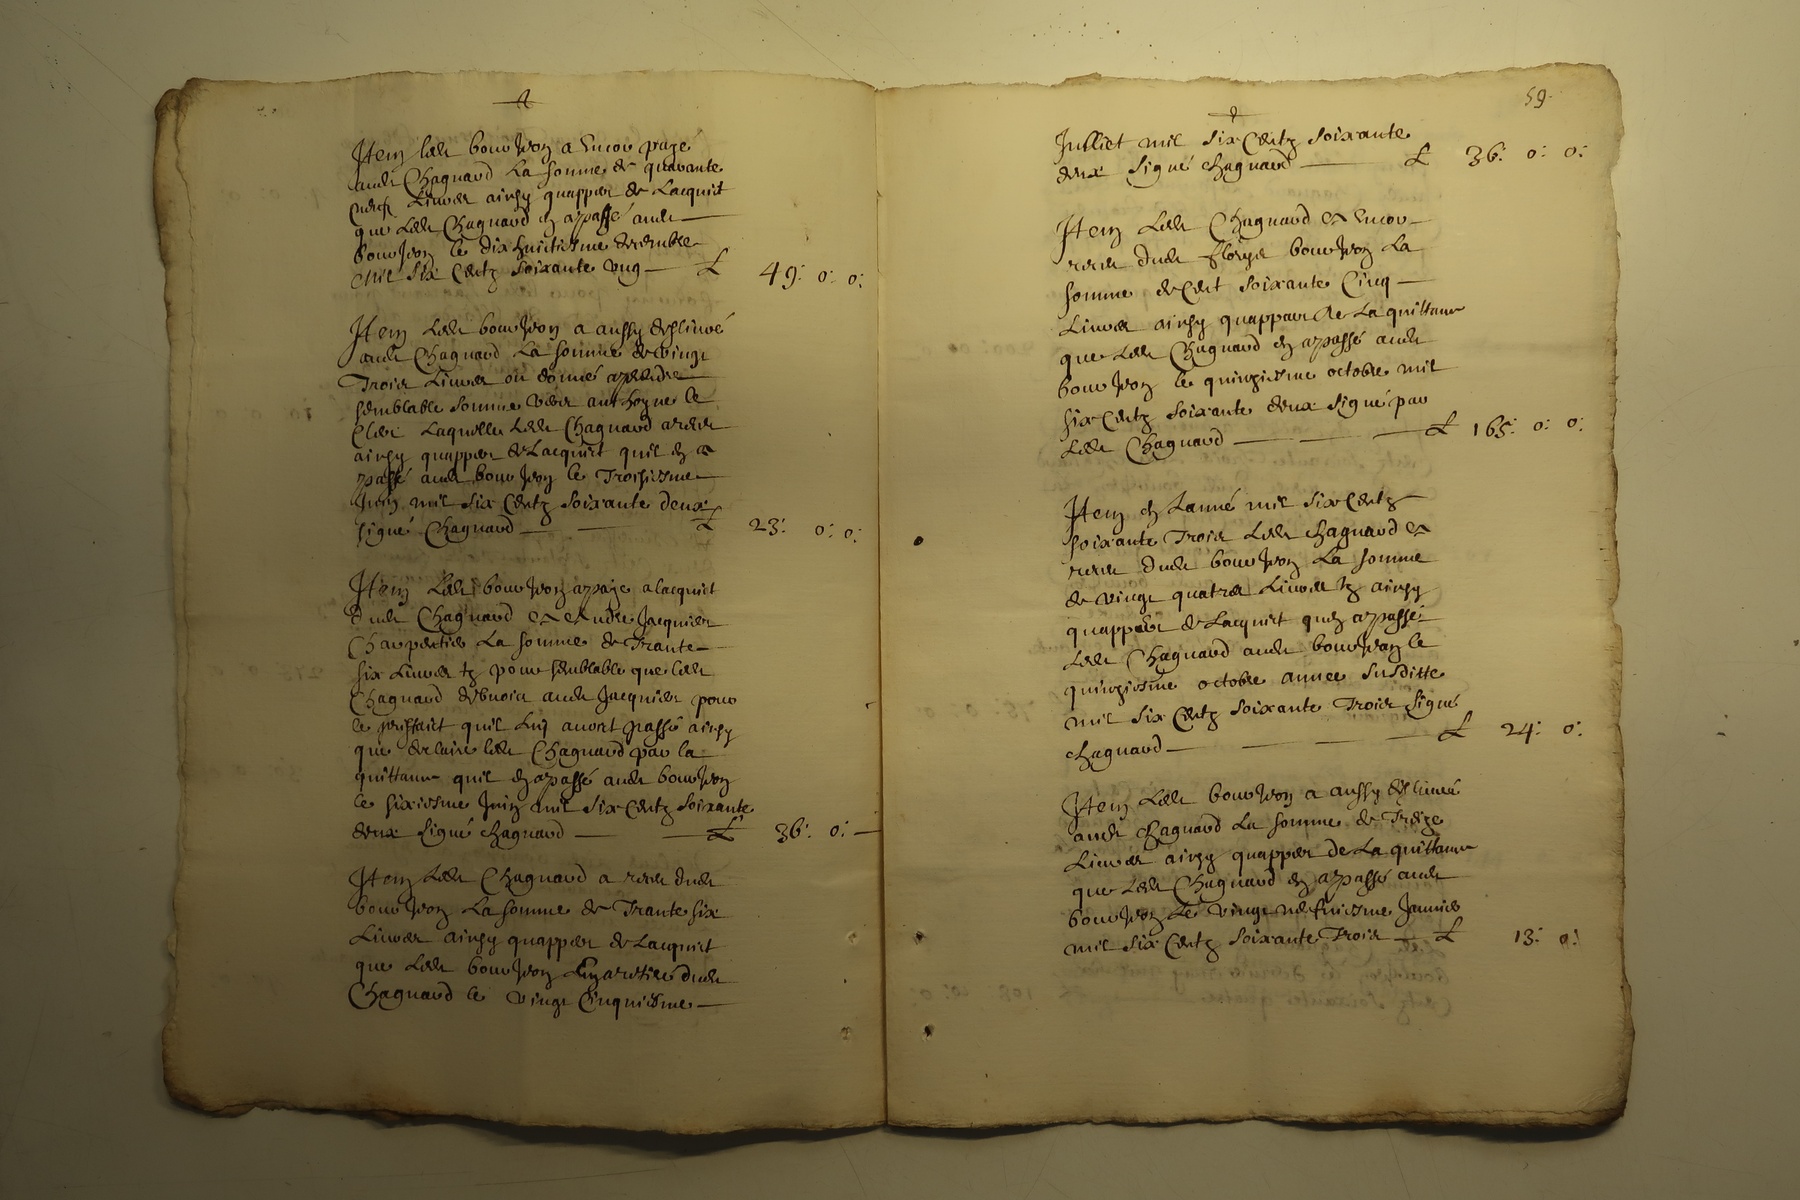 Item ledt bourdon a encor payé
audt Chagnard la somme de quarante
neufz livres ainsy quapper de lacquict
que ledt Chagnard en a passé audt
bourdon le dix huictiesme decembre
mil six centz soixante ung — £ 49: 0: 0:
Item ledt bourdon a aussy deslivré
audt Chagnard la somme de vingt
Trois livres ou donné a prendre
semblable somme vers anthoyne le
Clerc laquelle ledt Chagnard a receu
ainsy quapper de lacquict quil en a
passé audt bourdon le Troisiesme
Juin mil six centz soixante deux
signé Chagnard — £ 23: 0: 0:
Item ledt bourdon a paye a lacquict
dudt Chagnard et Jacquier
Charpentier la somme de Trante
six livres tz pour semblable que ledt
Chagnard debvoit audt Jacquier pour
le quil luy avoit passé ainsy
que declaire ledt Chagnard par la
quittance quil en a passé audt bourdon
le sixiesme Juin mil six centz soixante
deux signé Chagnard — £ 36: 0: —
Item ledt Chagnard a receu dudt
bourdon la somme de Trante six
livres ainsy quapper de lacquict
que ledt bourdon dudt
Chagnard le vingt cinquiesme —
59
Julliet mil six centz soixante
deux signé Chagnard — £ 36: 0: 0:
Item ledt Chagnard a encor
receu dudt bourdon la
somme de cent soixante cinq
livres ainsy quappar de la quittance
que ledt Chagnard en a passé audt
bourdon le quinziesme octobre mil
six centz soixante deux signé par
ledt Chagnard — £ 165: 0: 0:
Item en lanné mil six centz
soixante Trois ledt Chagnard a
receu dudt bourdon la somme
de vingt quatre livres tz ainsy
quapper de lacquict quen a passé
ledt Chagnard audt bourdon le
quinziesme octobre annee susditte
mil six centz soixante Trois signé
Chagnard — £ 24: 0:
Item ledt bourdon a aussy deslivré
audt Chagnard la somme de Treize
livres ainsy quapper de la quittance
que ledt Chagnard en a passé audt
bourdon le vingt neufviesme Janvier
mil six centz soixante Trois — £ 13: 0: